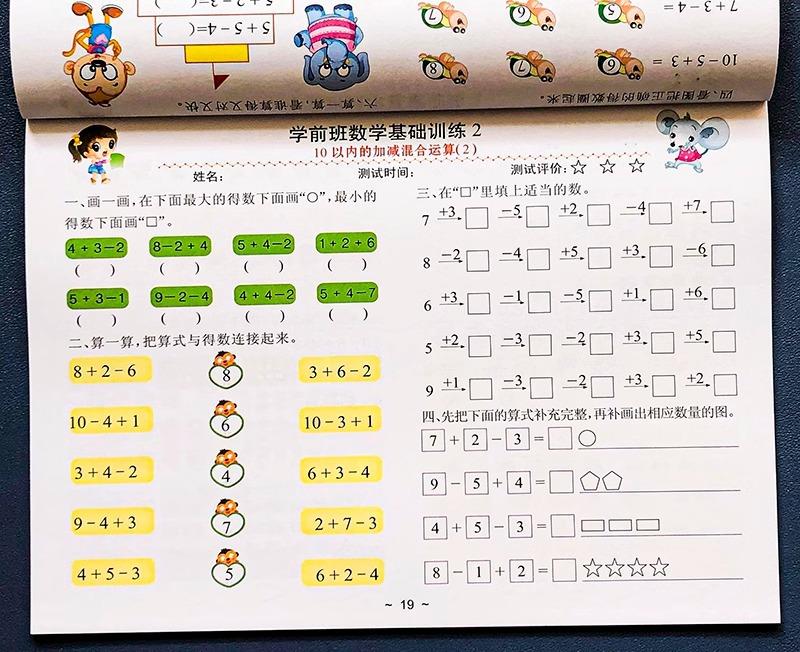 5+2-3=( )
5+5-4=( )
六、算一算,看谁算得又对又快。
7+3-4=
10-5+3=
7 6 5
8 7 6
四、看图把正确的得数圈起来。
学前班数学基础训练2
10以内的加减混合运算(2)
姓名: 测试时间: 测试评价:☆ ☆ ☆
一、画一画,在下面最大的得数下面画“○”,最小的
得数下面画“□”。
4+3-2 8-2+4 5+4-2 1+2+6
( ) ( ) ( ) ( )
5+3-1 9-2-4 4+4-2 5+4-7
( ) ( ) ( ) ( )
二、算一算,把算式与得数连接起来。
8+2-6 8 3+6-2
10-4+1 6 10-3+1
3+4-2 4 6+3-4
9-4+3 7 2+7-3
4+5-3 5 6+2-4
三、在“□”里填上适当的数。
7 +3 □ -5 □ +2 □ -4 □ +7 □
8 -2 □ -4 □ +5 □ +3 □ -6 □
6 +3 □ -1 □ -5 □ +1 □ +6 □
5 +2 □ -3 □ -2 □ +3 □ +5 □
9 +1 □ -3 □ -2 □ +3 □ +2 □
四、先把下面的算式补充完整,再补画出相应数量的图。
7+2-3=□
9-5+4=□
4+5-3=□
8-1+2=□
~ 19 ~